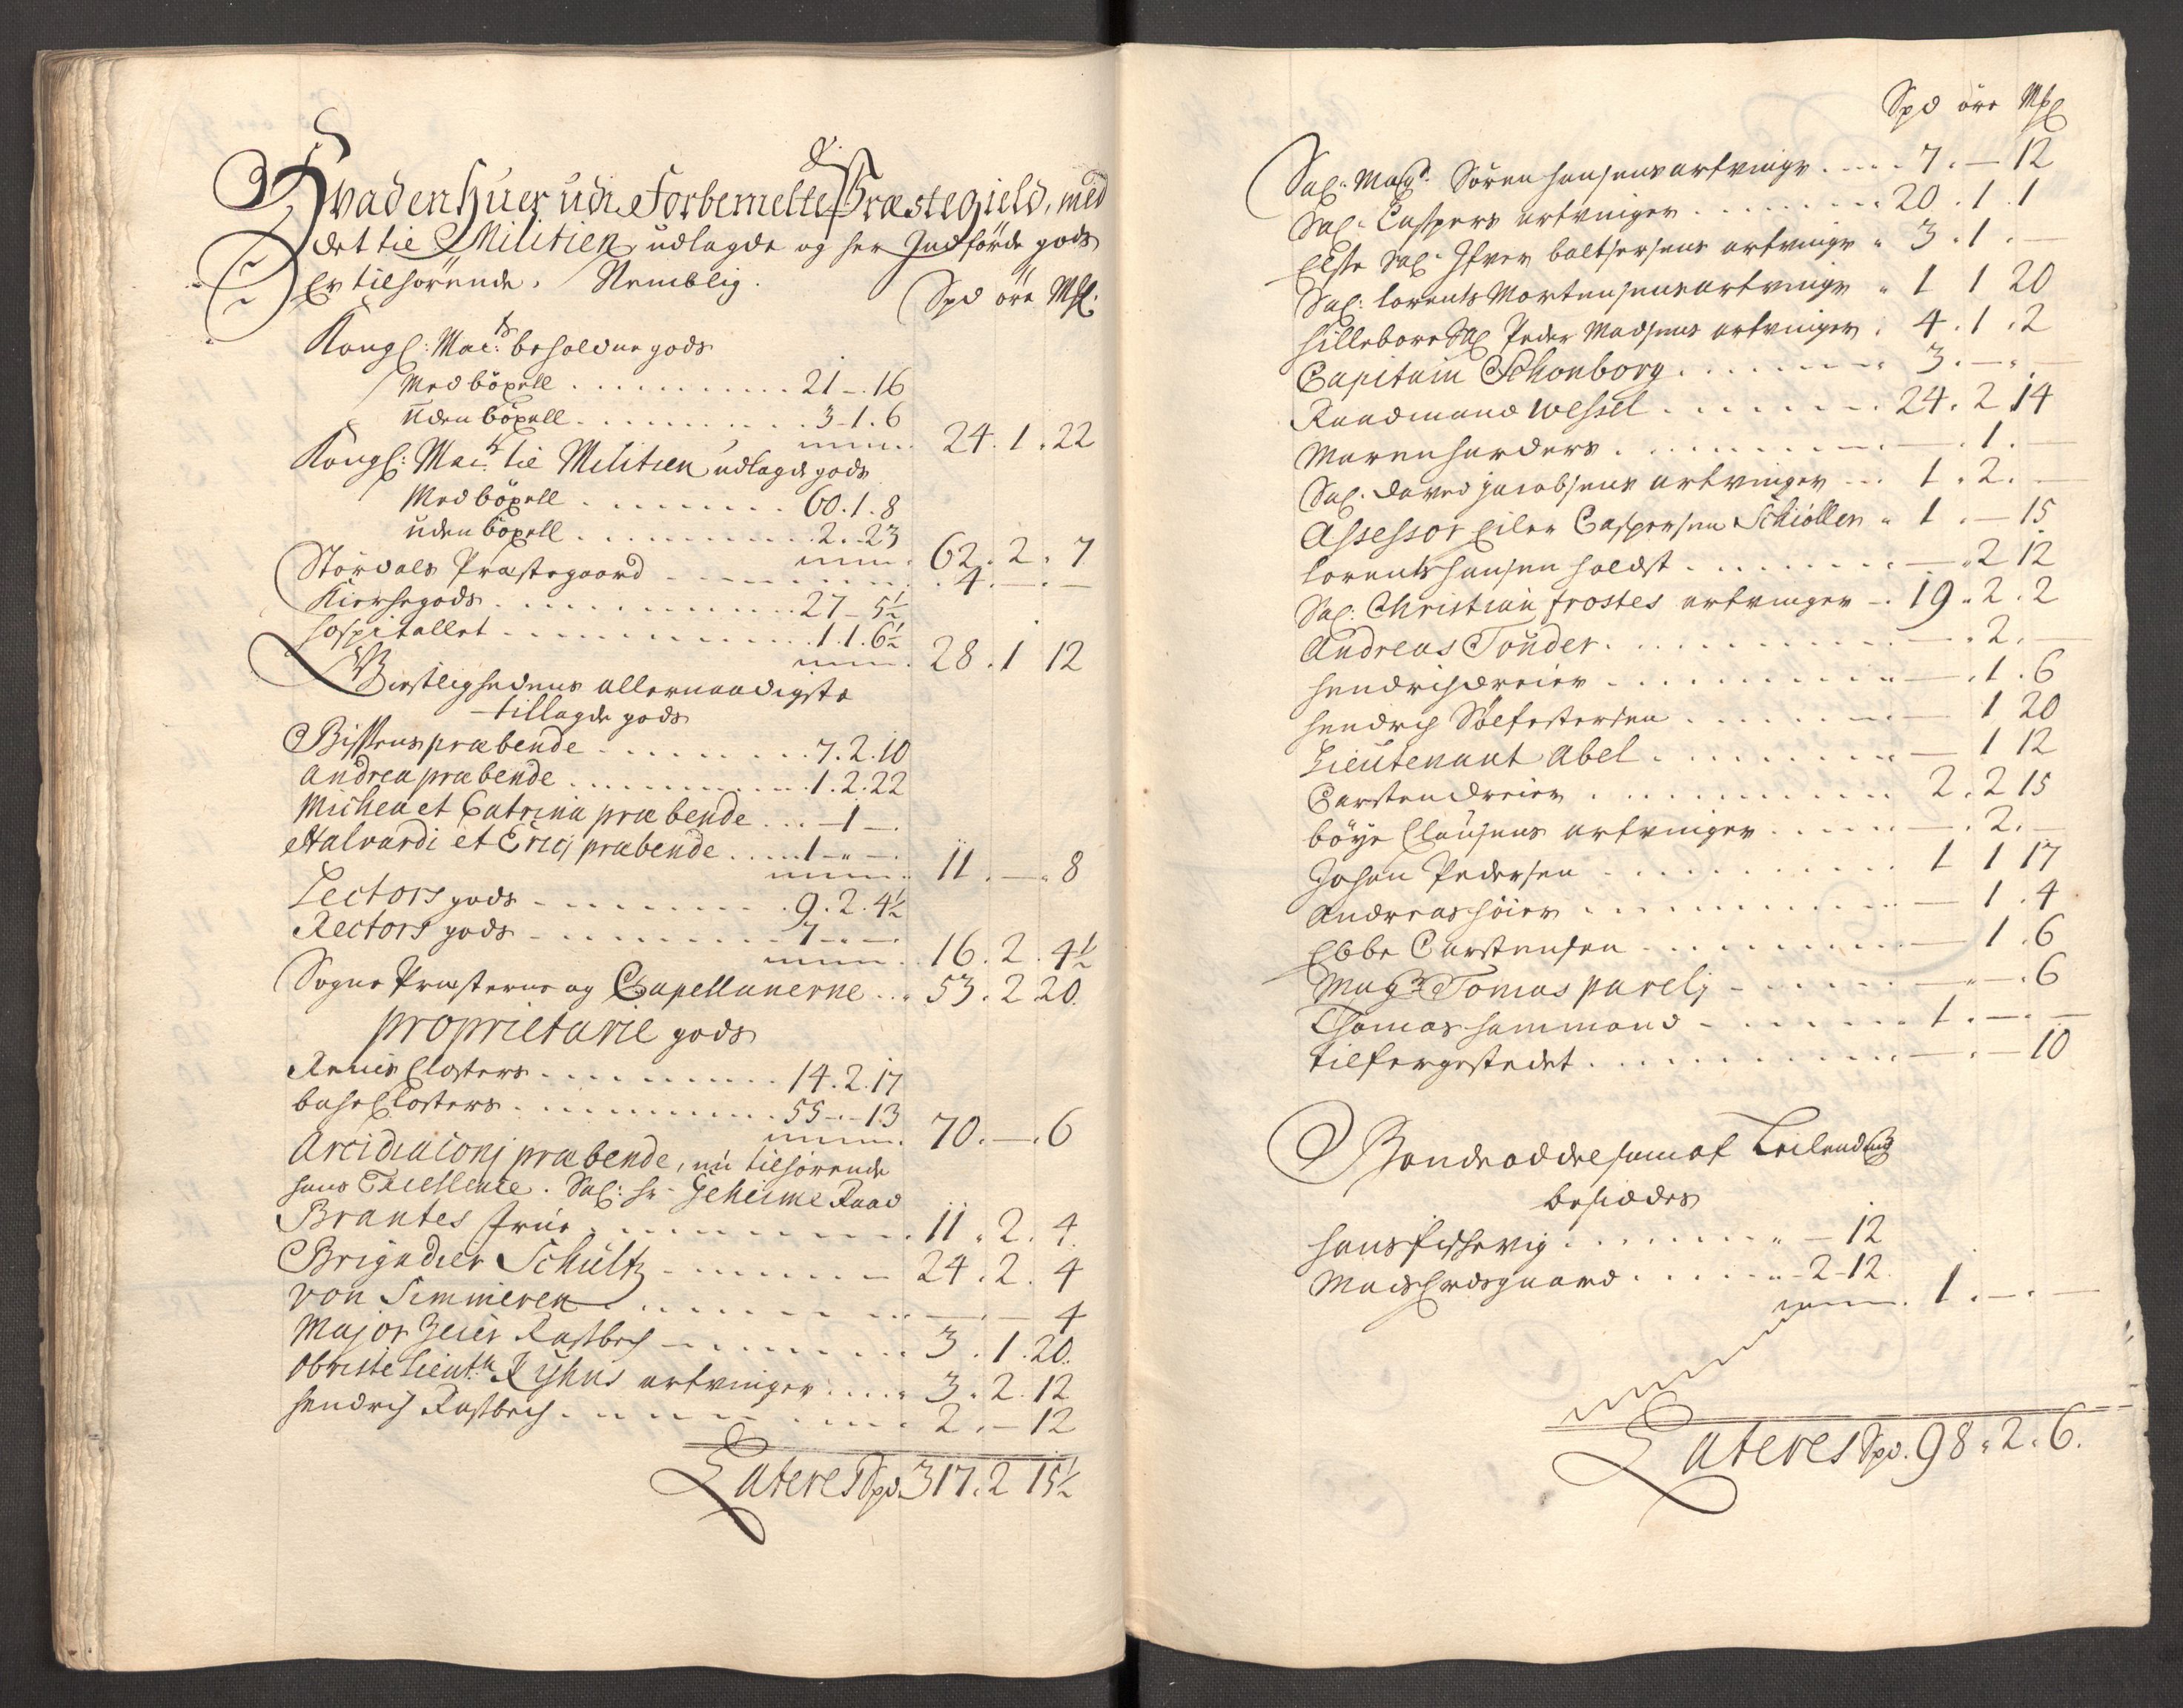 Hvad en huer udi Forbemelte Præstegield, med
det til Militien udlagde og her Indförde gods
Er tilhörende. Nemblig.
Spd öre Mßl:
Kongl: May:ts beholdne gods
Med böxell . . . 21 - 16
Uden böxell . . . 3 - 1 . 6
24 . 1 . 22
Kongl: May:ts til Militien udlagde gods
Med böxell . . . 60 . 1 . 8
uden böxell . . . 2 . - 23
62 . 2 . 7
Stördals Præstegaard . . . 4 . — . —
Kierchegods . . . 27 - 5½
Hospitallet . . . 1 . 1 . 6½
28 . 1 12
Geistlighedens allernaadigste
tillagde gods
Bispens præbende . . . 7 . 2 . 10
Andrea præbende . . . 1 . 2 . 22
Michea et Catrina præbende . . . - 1 - .
Halvardi et Erici præbende . . . 1 - - .
11 . — . 8
Lectors gods . . . 9 . 2 . 4½
Rectors gods . . . 7 . - - .
16 . 2 . 4½
Sogne Præsterne og Capellanerne . . . 53 . 2 20.
proprietarie gods
Reins Closters . . . 14 . 2 . 17
bache Closters . . . 55 - . - 13
70 . — . 6
Arcidiaconj præbende, nu tilhörende
hans Excellence. Sal: hr. Geheime Raad
Brantes frue . . . 11 . 2 . 4
Brigadier Schultz . . . 24 . 2 . 4
von Simmeren . . . — . — 4
Major Zeier Rastbech . . . 3 . 1 . 20.
Obriste Lieut:n Kyhns arfvinger . . . 3 . 2 . 12
Hendrich Rastbech . . . 2 . — 12
Lateres Spd. 317 . 2 15½
Spd öre Mßl
Sal: Mag:r Sören Hansens arfvinge . . . 7 . — 12
Sal: Caspers arfvinger . . . 20 . 1 . 1
Else Sal: Ifver baltzersens arfvinge . 3 . 1 . —
Sal: Lorents Mortensens arfvinge . 1 1 20
Hillebore Sal Peder Madsens arfvinger . 4 . 1 . 2
Capitain Schonborg . . . 3 . — . —
Raadmand Wessel . . . 24 . 2 14
Maren Harders . . . — . 1 . —
Sal: David Jacobsens arfvinger . . . 1 . 2 . —
Assessor Eiler Caspersen Schiöller . 1 . — 15
Lorents Hansen Holdst . . . — . 2 12
Sal: Christian frostes arfvinger . . 19 . 2 . 2
Andreas Tönder . . . — . 2 . —
Hendrich dreier . . . — . 1 . 6
Hendrich Sölfestersen . . . — 1 20
Lieutenant Abel . . . — 1 12
Carsten dreier . . . 2 . 2 15
böye Clausens arfvinger . . . — . 2 . —
Johan Pedersen . . . 1 1 17
Andreas höier . . . — 1 . 4
Ebbe Carstensen . . . — 1 . 6
Mag:r Tomas parelj . . . — . — . 6
Thomas Hammond . . . 1 . — . —
tilfergestedet . . . — . — 10
Bonde oddel som af Leilending
besiddes
Hans fishevig . . . - 12
Mads Ersgaard . . . - 2 - 12
1 . — . —
Lateres Spd. 98 . 2 . 6.